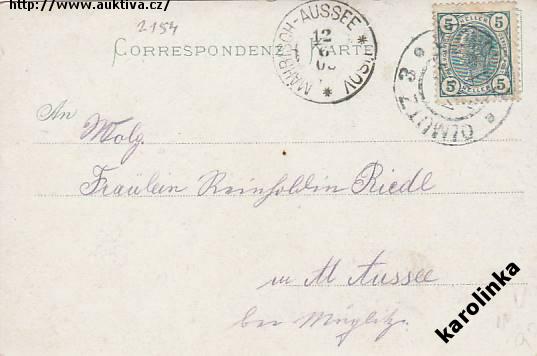 http://www.auktiva.cz/
2154
CORRESPONDENZ-KARTE
MÄHRISCH-AUSSEE
12
6
ÚSOV
5 5
HELLER
5 5
OLMÜTZ 3
An
Wolg.
Fräulein Reinholdin Riedl
in M Aussee
bei Müglitz.
karolinka